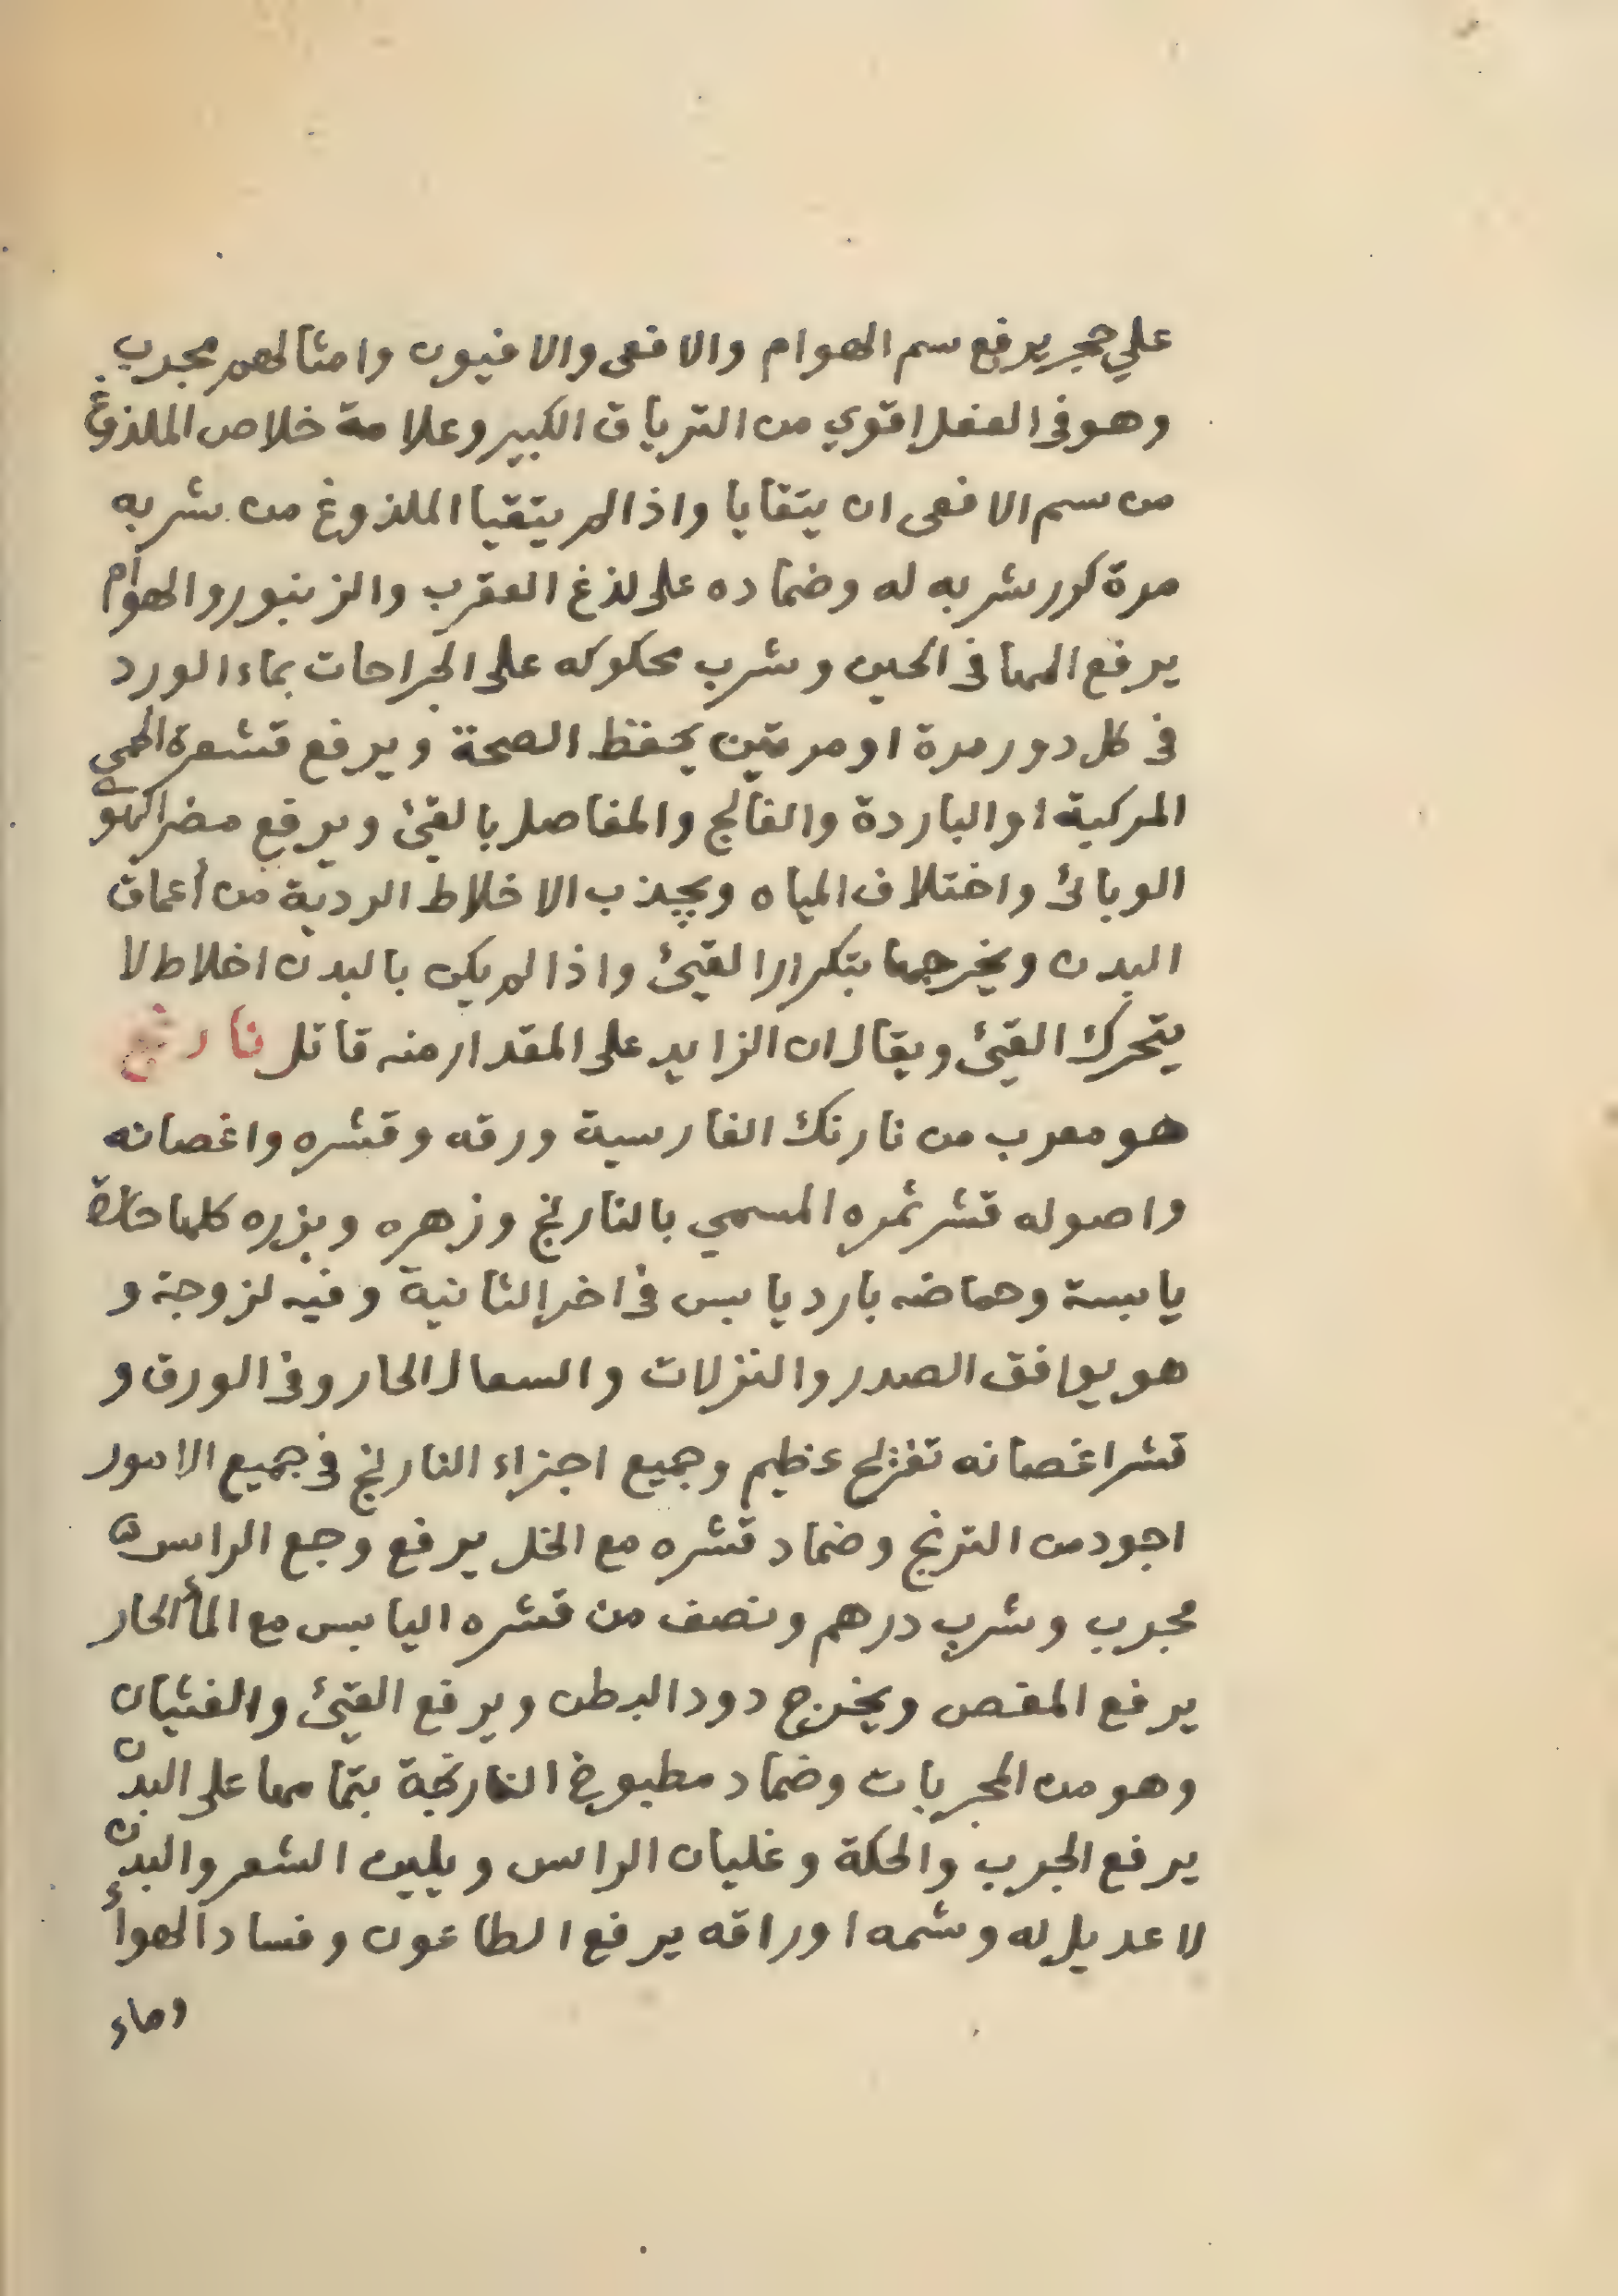 علي حجر يرفع سم الهوام والافعى والافيون وامثالهم مجرب
وهو فى الفعل اقوي من الترياق الكبير وعلامة خلاص الملذوغ
من سم الافعى ان يتقايا واذا لم يتقيا الملذوغ من شربه
مرة كرر شربه له وضماده على لذغ العقرب والزنبور والهوام
يرفع المها فى الحين وشرب محكوكه على الجراحات بماء الورد
فى كل دور مرة او مرتين يحفظ الصحة ويرفع قشعرة الحمى
المركبة او الباردة والفالج والمفاصل بالقئ ويرفع مضر الهوا
الوبائ واختلاف المياه ويجذب الاخلاط الردية من أعماق
البدن ويخرجها بتكرار القئ واذا لم يكن بالبدن اخلاط لا
يتحرك القئ ويقال ان الزايد على المقدار منه قاتل نارنج
هو معرب من نارنك الفارسية ورقه وقشره واغصانه
واصوله قشر ثمره المسمي بالنارنج وزهره وبزره كلها حارة
يابسة وحماضه بارد يابس فى اخر الثانية وفيه لزوجة و
هو يوافق الصدر والنزلات والسعال الحار وفى الورق و
قشر اغصانه تفزيح عظيم وجميع اجزاء النارنج فى جميع الامور
اجود من الترنج وضماد قشره مع الخل يرفع وجع الراس
مجرب وشرب درهم ونصف من قشره اليابس مع المأ الحار
يرفع المغص ويخرج دود البطن ويرفع القئ والغثيان
وهو من المجربات وضماد مطبوخ النارنجة بتمامها على البدن
يرفع الجرب والحكة وغليان الراس ويلين الشعر والبدن
لا عديل له وشمه اوراقه يرفع الطاعون وفساد الهوأ
وماء